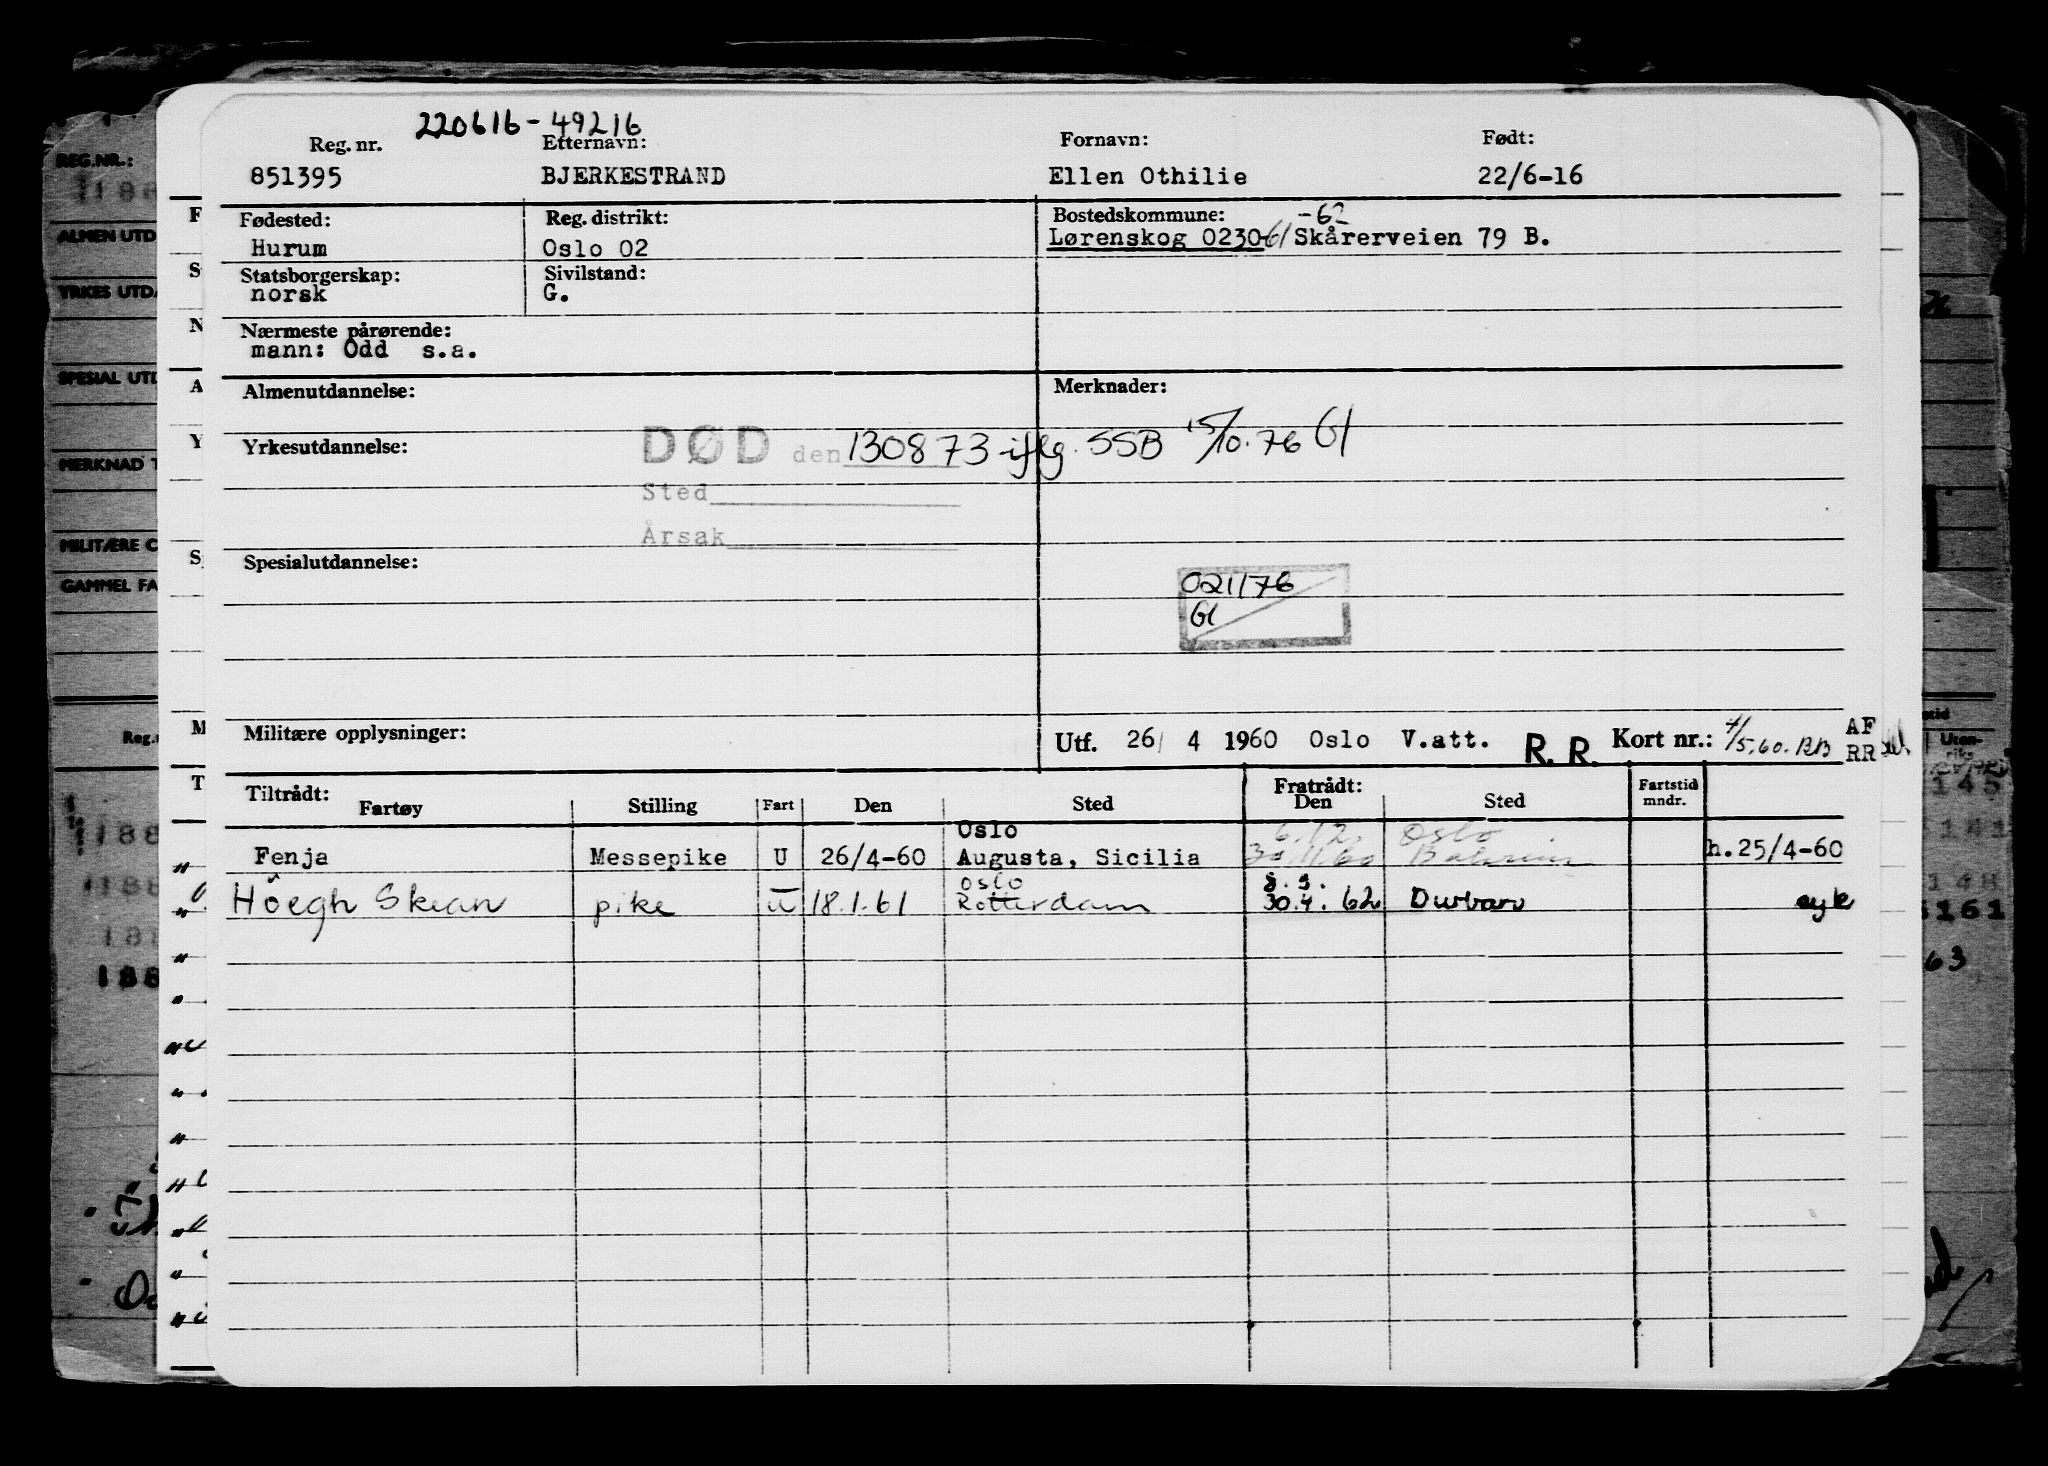 220616-49216
Reg. nr. Etternavn: Fornavn: Født:
851395 BJERKESTRAND Ellen Othilie 22/6-16
Fødested: Reg. distrikt: Bostedskommune: -62
Hurum Oslo 02 Lørenskog 0230-61 Skårerveien 79 B.
Statsborgerskap: Sivilstand:
norsk G.
Nærmeste pårørende:
mann: Odd s.a.
Almenutdannelse: Merknader:
Yrkesutdannelse: DØD den 130873 iflg. SSB 15/10.76 Gl
Sted
Årsak
Spesialutdannelse:
021/76
Gl
Militære opplysninger: Utf. 26/ 4 1960 Oslo V.att. R. R. Kort nr.: 4/5.60. BB AF
RR
Tiltrådt: Fratrådt:
Fartøy Stilling Fart Den Sted Den Sted Fartstid mndr.
Oslo 6.12. Oslo
Fenja Messepike U 26/4-60 Augusta, Sicilia 30.11.60 Bahrein h.25/4-60
Oslo 8.9.
Höegh Skean pike U 18.1.61 Rotterdam 30.4.62 Durban syk
REG.NR.:
ALMEN UTD
YRKES UTDA
SPESIAL UTD
MERKNAD T
MILITÆRE O
GAMMEL FA
Reg.